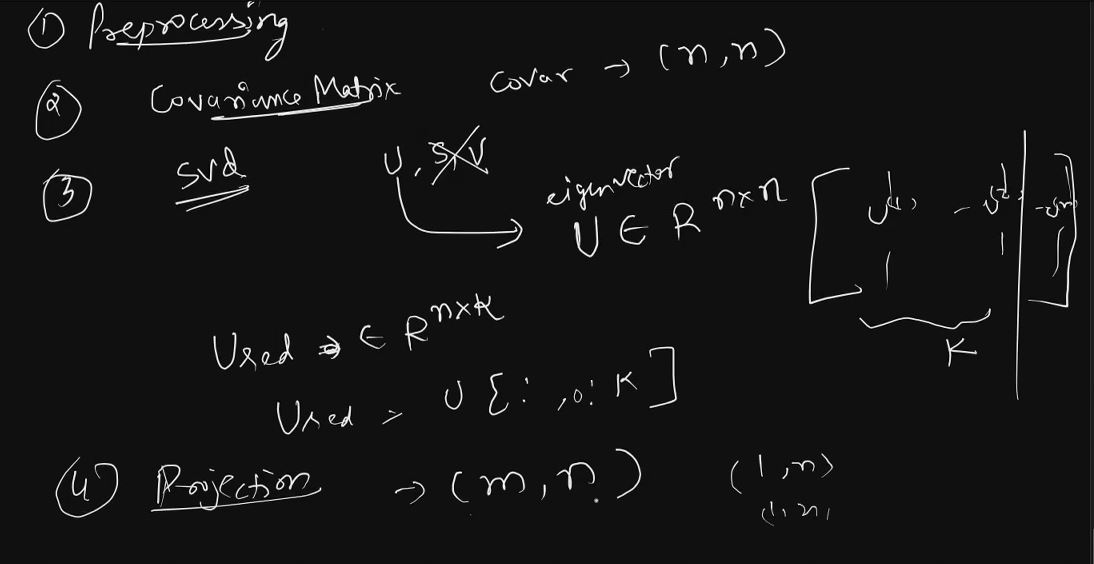 ① Preprocessing
② Covariance Matrix covar → (n, n)
③ svd U, S, V
eigenvector
U ∈ R n×n [ u(1) - u(k) - u(n) ]
K
Ured → ∈ R n×k
Ured = U [: , 0: K]
④ Projection → (m, n) (1, n)
(1, n)